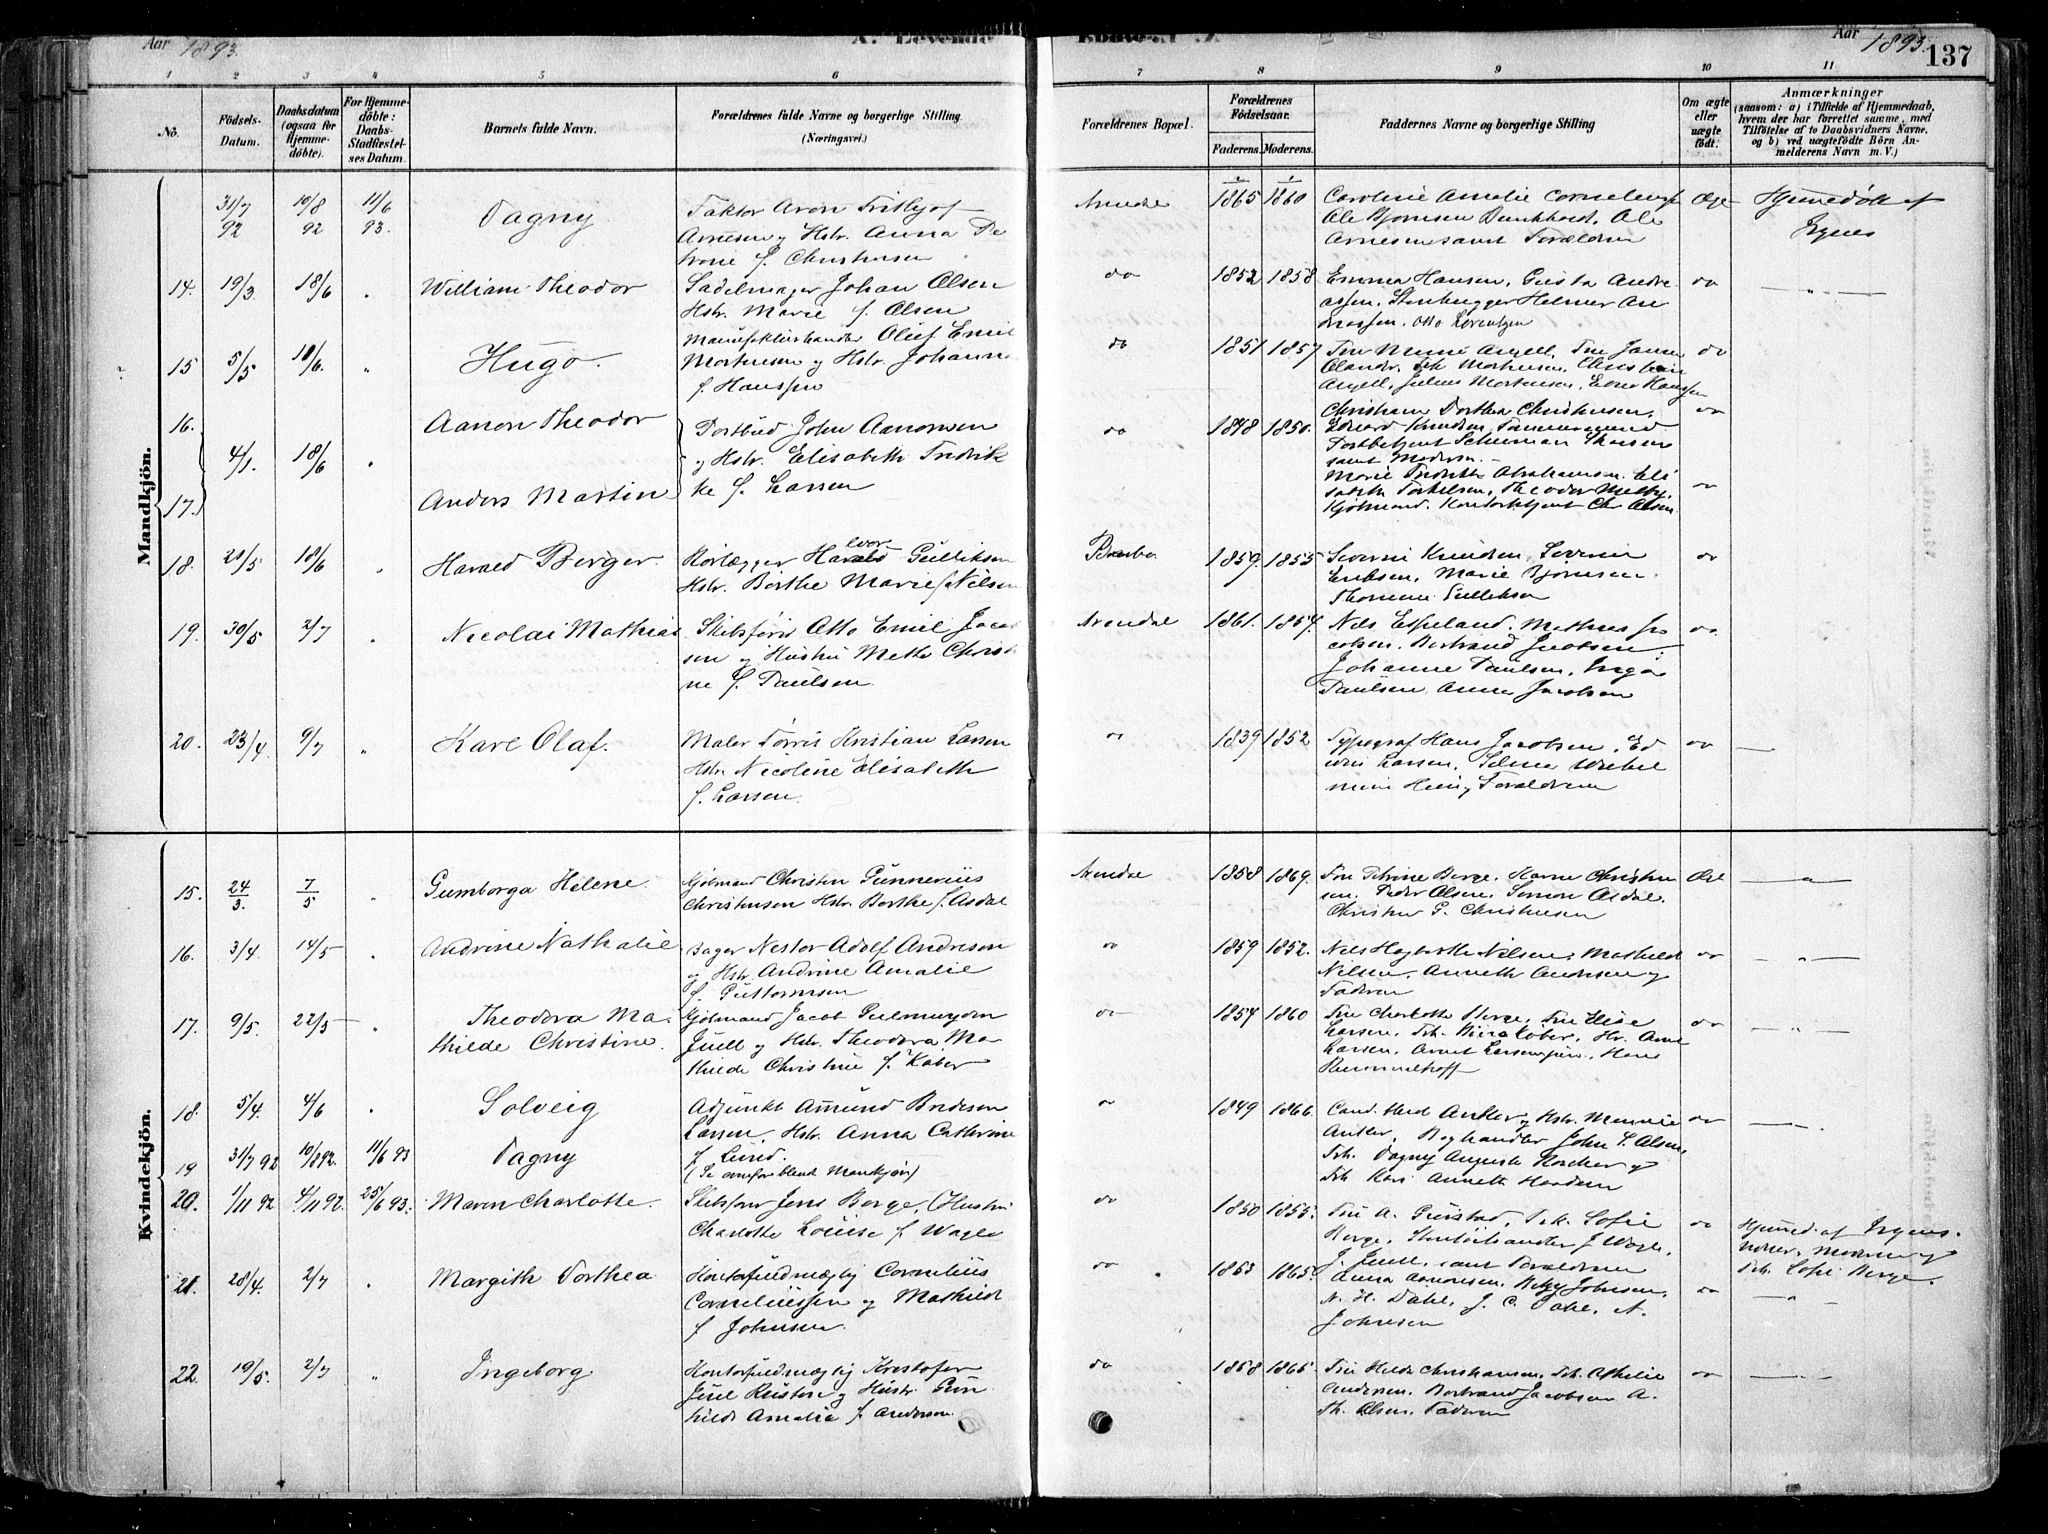 Aar 1893.
A. Levende
Aar 1893.
137
1 2 3 4 5 6 7 8 9 10 11
No.
Fødsels-Datum.
Daabsdatum (ogsaa for Hjemmedöbte).
For Hjemmedöbte: Daabs-Stadfæstelses Datum.
Barnets fulde Navn.
Forældrenes fulde Navne og borgerlige Stilling (Næringsvei.)
Forældrenes Bopæl.
Forældrenes Födselsaar.
Faderens. Moderens.
Faddernes Navne og borgerlige Stilling
Om ægte eller uægte født.
Anmærkninger
(saasom: a) i Tilfælde af Hjemmedaab, hvem der har forrettet samme, med Tilföielse af to Daabsvidners Navne. og b) ved uægtefödte Börn Anmelderens Navn m. V.)
Mandkjön.
31/7 92 10/8 92 11/6 93. Dagny
Faktor Aron Fritjof
Arnesen og Hstr. Anna Pe
trine f. Christensen
Arendal 1865 1860
Caroline Amalie Corneliussen
Ole Bjornsen
Arnesen samt Forældrene
Ægte
Hjemmedøbt af
Irgens
14. 19/3. 18/6 " William Theodor
Sadelmager Johan Olsen
Hstr. Marie f. Olsen
do 1852 1858
Emma Hansen, Gusta Andre
assen, Stenhugger Helmer An
dreassen. Otto Lorentzen
do
15 5/5 18/6. " Hugo.
Manufakturhandler Oluf Emil
Mortensen og Hstr. Johanne
f. Hanssen
do 1851 1857
do
16. Aanon Theodor
4/1. 18/6 "
17. Anders Martin
Postbud John Aanonsen
og Hstr. Elisabeth Fredrik
ke f. Larsen
do 1848 1850.
Christiane Dorthea Christensen,
Edvard Knudsen, Tømmermand
Postbetjent
samt Moderen.
Marie Fredrikke Abrahamsen. Eli
sabeth Torkelsen, Theodor Melby,
Kjøbmand. Kontorbetjent Chr Olsen
do
do
18. 21/5 18/6 " Harald Berger.
Rørlægger Halvor Gulliksen
Hstr. Berthe Marie f. Nilsen
Barbo 1859. 1855
Severine Knudsen, Severin
Eriksen, Marie Bjørnsen.
Thomine Gulliksen
do
19. 30/5 2/7 " Nicolai Mathias
Skibsfører Otto Emil Jacob
sen og Hustru Mette Christi
ne f. Paulsen.
Arendal 1861. 1864.
Nils Espeland. Mathias Ja
cobsen. Bertrand Jacobsen
Johanne Paulsen, Inga
Paulsen Anna Jacobsen
do
20. 23/4. 9/7 " Karl Olaf.
Maler Tørris Kristian Larsen
Hstr. Nicoline Elisabeth
f. Larsen.
do 1839 1852
Typograf Hans Jacobsen. Ed
vin Larsen, Selma Wilhel
mine Hein, Forældrene
do
Kvindekjön.
15. 24/3. 7/5 " Gunborga Helene.
Kjøbmand Christen Gunnerius
Christensen Hstr. Berthe f. Asdal
Arendal 1858 1869.
Fru Petrine Berge. Karen Christen
sen. Peder Olsen, Simon Asdal.
Christen G. Christensen
Ægte "
16. 3/4. 14/5 " Andrine Nathalie
Bager Nestor Adolf Andresen
og Hstr. Andrine Amalie
f. Guttormsen
do 1859 1852.
Nils Hagbarth Nilsen, Mathilde
Nilsen. Annette Andersen og
Faderen
do "
17. 9/5. 22/5 " Theodora Ma
thilde Christine.
Kjøbmand Jacob
Juell og Hstr. Theodora Ma
thilde Christine f. Kaber
do 1857 1860
Fru Charlotte Berge, Fru Elise
Larsen, Frk. Nina Køber, Hr. Arne
Larsen, Arnt Larsen jun., Hans
Rummelhoff
do "
18. 5/4. 4/6 " Solveig
Adjunkt Amund Bredesen
Larsen, Hstr. Anna Cathrine
f. Lund.
do 1849 1866.
Cand. Med Anker og Hstr. Mennie
Anker, Boghandler John S. Olsen,
Frk. Dagny Auguste Norcher og
Frk Kari Annette Haadem
do
19 31/7 92 10/8 92. 11/6 93 Dagny
(Se ovenfor blandt Mankjøn)
20. 1/11 92 4/11 92. 25/6 93. Maren Charlotte.
Skibsfører Jens Berge, (Hustru
Charlotte Louise f. Wagle
do 1850 1855.
Fru A. Grirstad, Frk. Sofie
Berge, J Wagle,
J. Juell, samt Forældrene
do
Hjemmed. af Irgens.
Moderen og
Frk. Sofie Berge.
21. 28/4. 2/7 " Margith Dorthea
Kontorfuldmægtig Cornelius
Corneliussen og Mathilde
f Johnsen.
do 1863 1865.
Anna Aanonsen, Betzy Johnsen,
N. H. Dahl, J. C. Dahl, A.
Johnsen
do "
22. 19/5. 2/7 " Ingeborg
Kontorfuldmægtig Kristofer
Juul Rustone og Hustr. Gun
hilde Amalia f. Andersen.
do 1868 1865
Fru Hilda Christiansen, Frk. Othilie
Andersen. Bertrand Jacobsen A.
Th. Olsen, Faderen
do